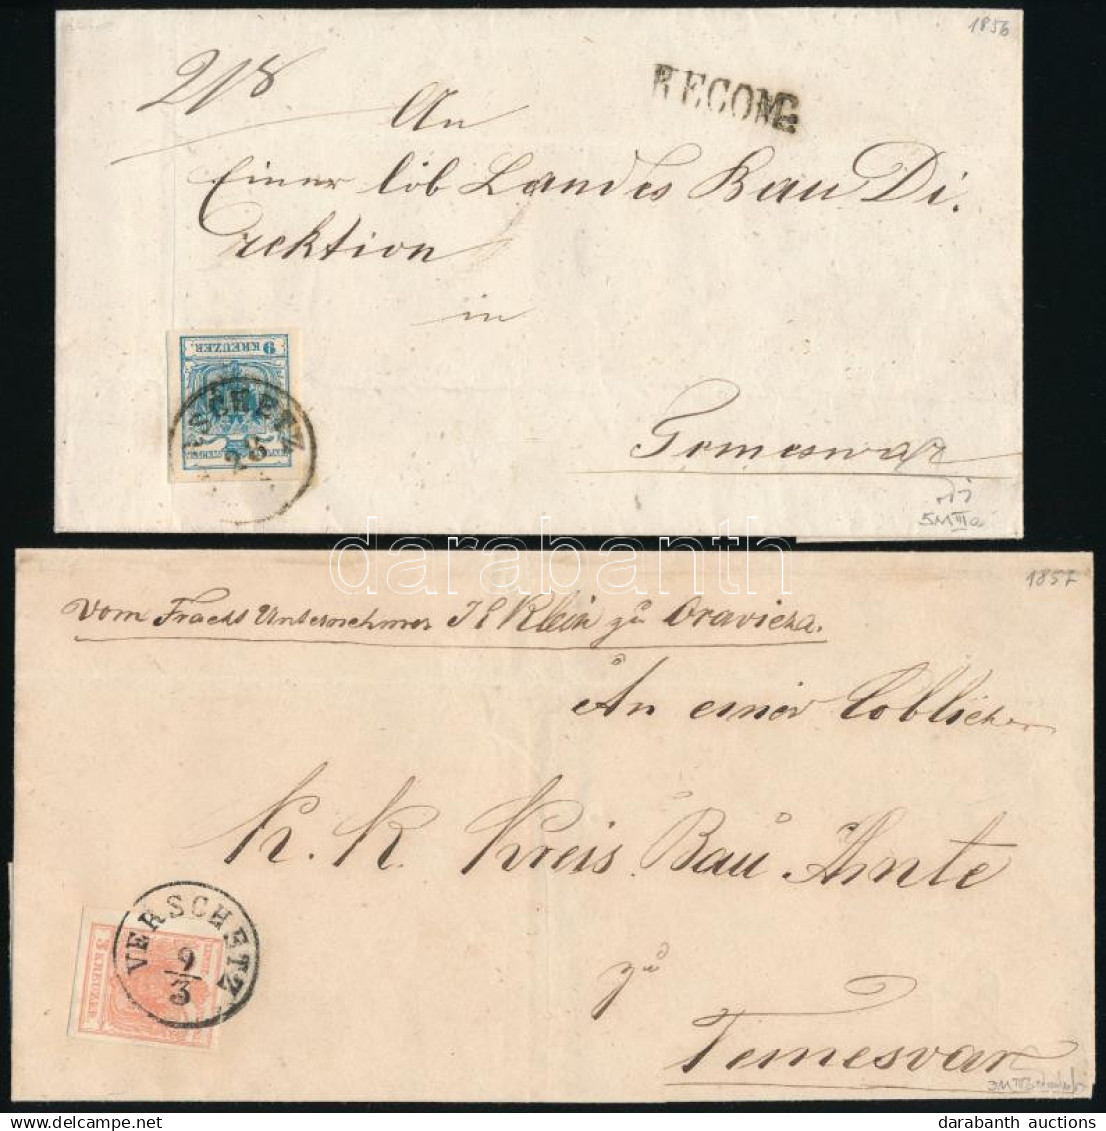 1856
218
RECOM:
An
Einer löb Landes Bau Di.
rektion
in
9 KREUZER.
RSCHETZ
28
Temeswar
5MIIIa
darabanth
1857
vom Fracht Unternehmer Klein zu Oravicza.
An einer löblichen
K. K. Kreis Bau Amte
VERSCHETZ
9/3
3 KREUZER.
zu
Temesvar
darabanth auctions